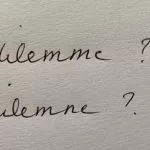 dilemme ?
dilemne ?